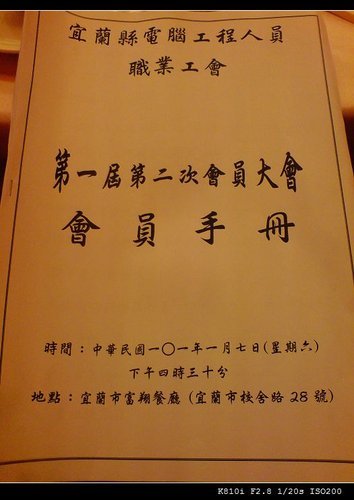 宜蘭縣電腦工程人員
職業工會
第一屆第二次會員大會
會員手冊
時間：中華民國一〇一年一月七日(星期六)
下午四時三十分
地點：宜蘭市富翔餐廳 (宜蘭市校舍路 28 號)
K810i F2.8 1/20s ISO200